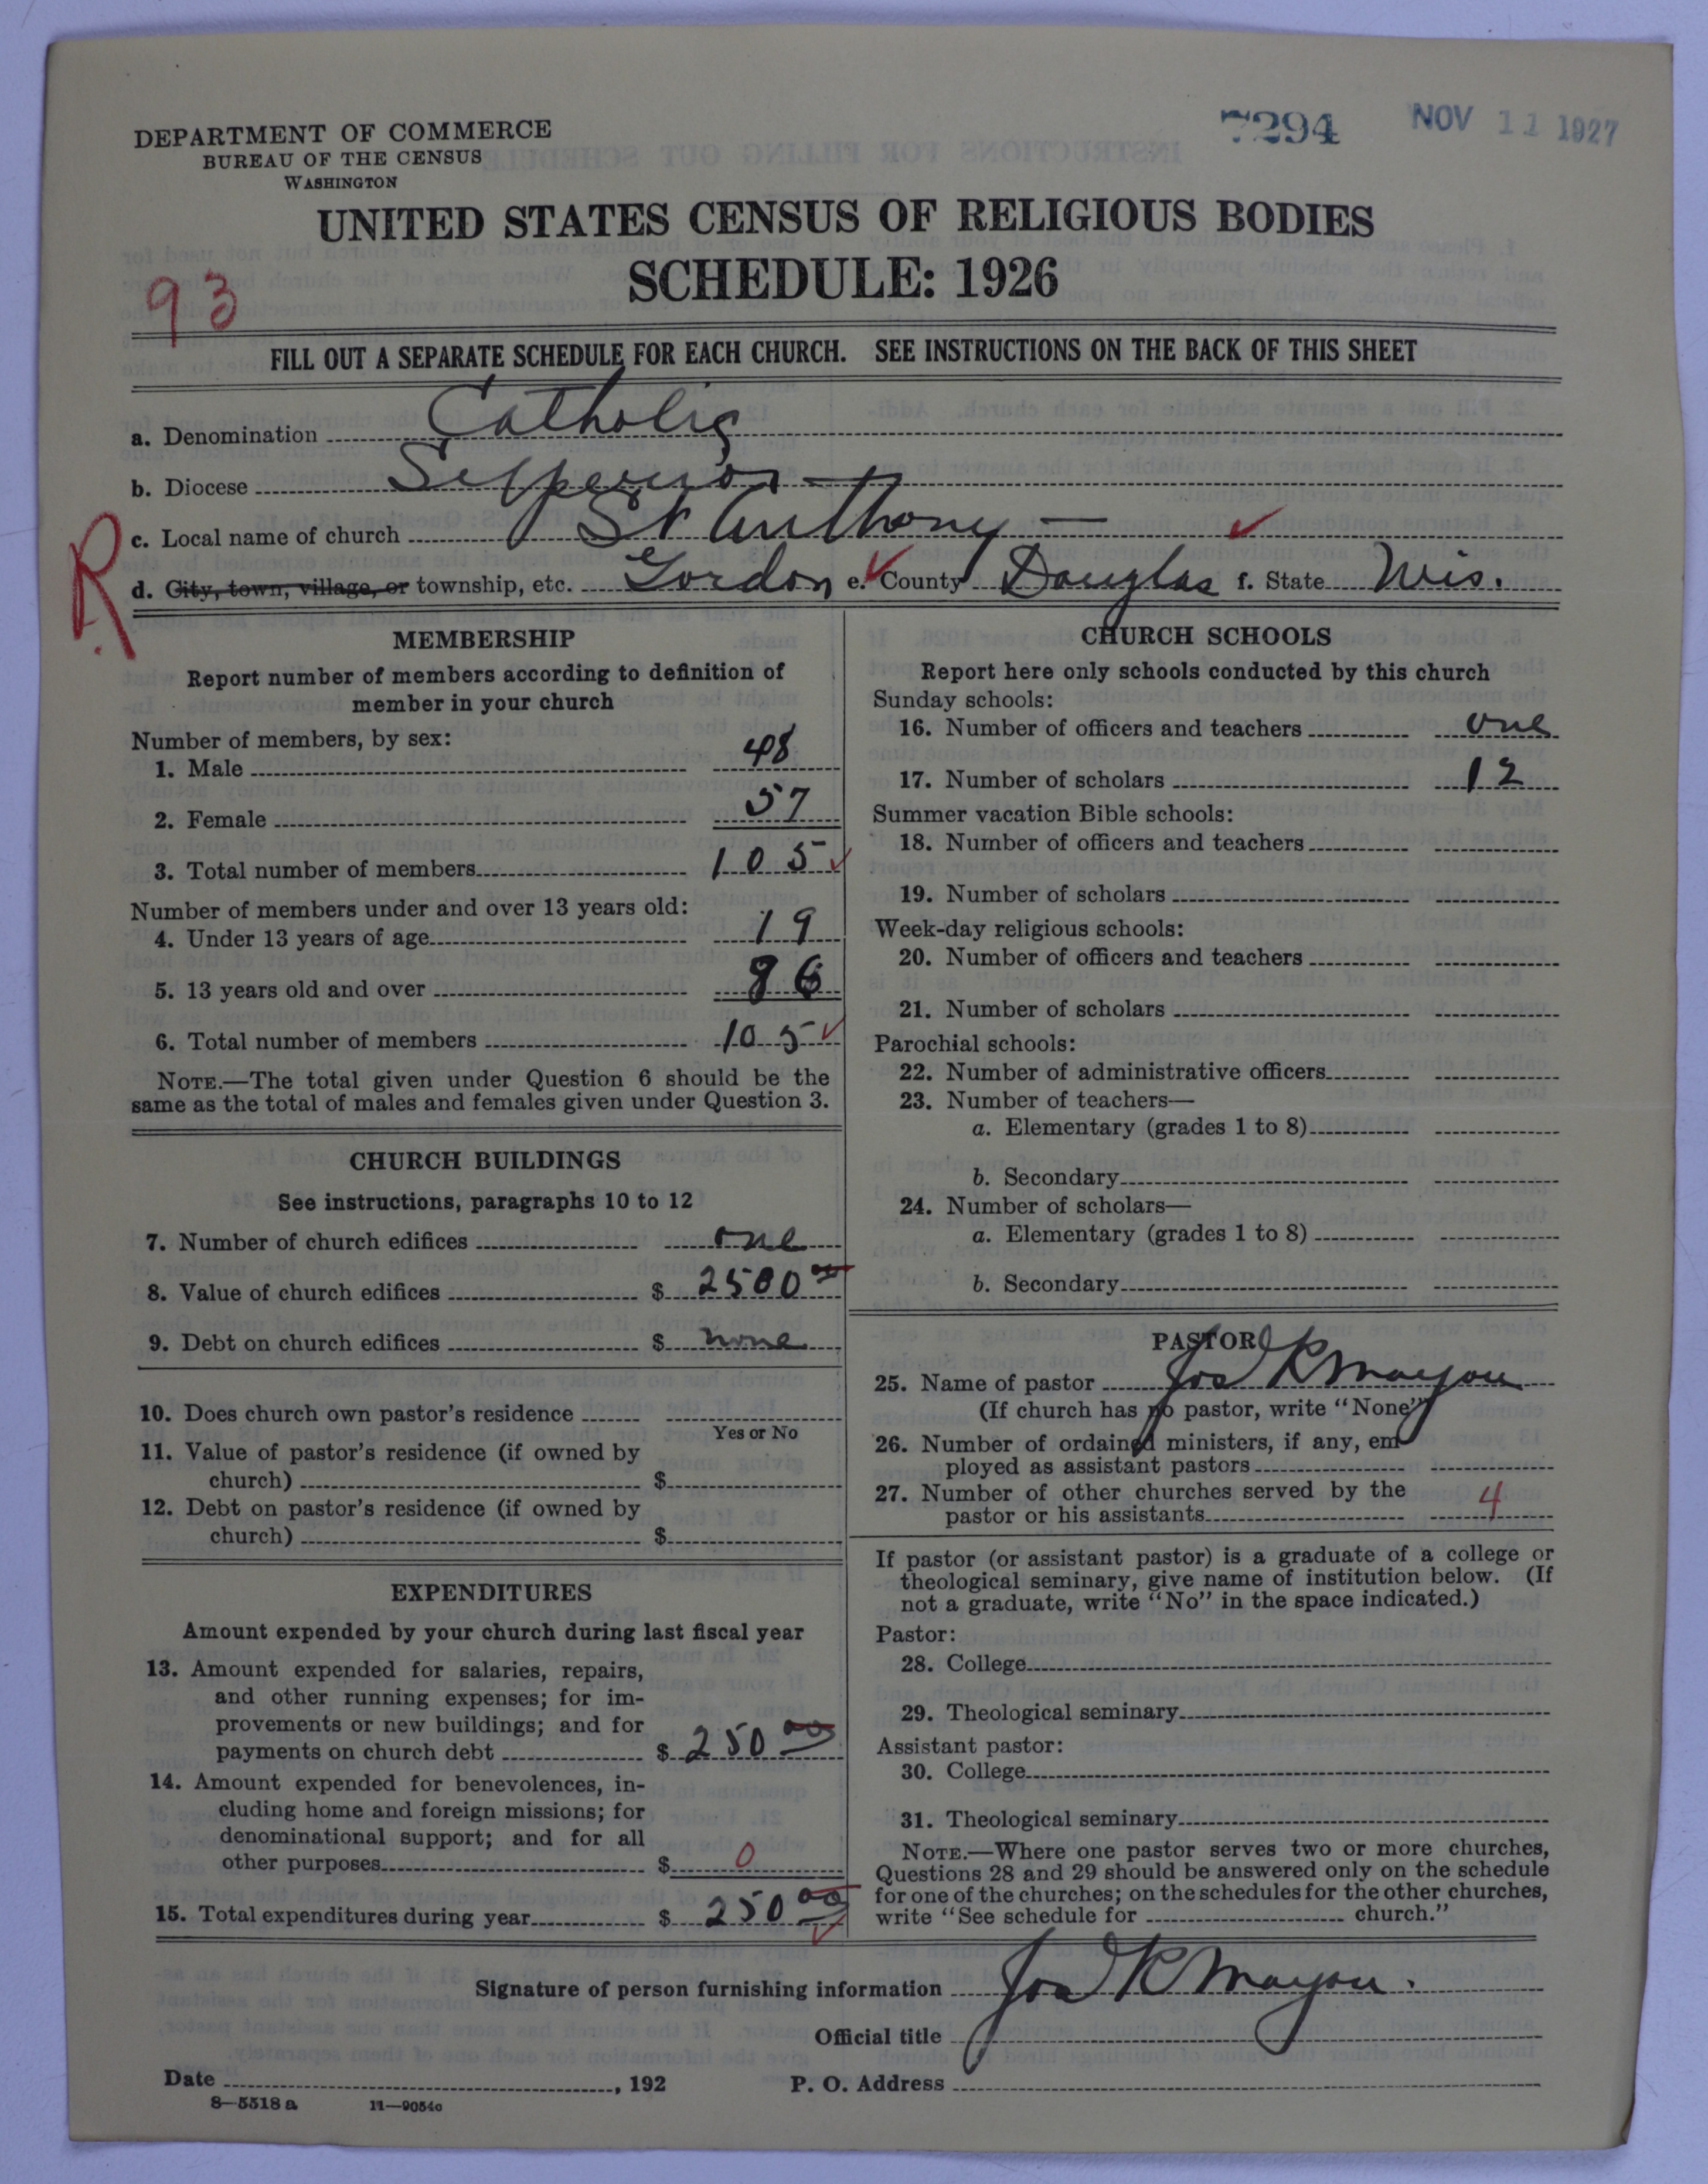 7294 NOV 11 1927
DEPARTMENT OF COMMERCE
BUREAU OF THE CENSUS
WASHINGTON
UNITED STATES CENSUS OF RELIGIOUS BODIES
SCHEDULE: 1926
93
FILL OUT A SEPARATE SCHEDULE FOR EACH CHURCH. SEE INSTRUCTIONS ON THE BACK OF THIS SHEET
a. Denomination Catholic
b. Diocese Superior
R
c. Local name of church St Anthony
d. City, town, village, or township, etc. Gordon e. County Douglas f. State Wis.
MEMBERSHIP
Report number of members according to definition of
member in your church
Number of members, by sex:
1. Male 48
2. Female 57
3. Total number of members 105
Number of members under and over 13 years old:
4. Under 13 years of age 19
5. 13 years old and over 86
6. Total number of members 105
NOTE.—The total given under Question 6 should be the
same as the total of males and females given under Question 3.
CHURCH BUILDINGS
See instructions, paragraphs 10 to 12
7. Number of church edifices one
8. Value of church edifices $ 2500 00
9. Debt on church edifices $ none
10. Does church own pastor's residence
Yes or No
11. Value of pastor's residence (if owned by
church) $
12. Debt on pastor's residence (if owned by
church) $
EXPENDITURES
Amount expended by your church during last fiscal year
13. Amount expended for salaries, repairs,
and other running expenses; for im-
provements or new buildings; and for
payments on church debt $ 250 00
14. Amount expended for benevolences, in-
cluding home and foreign missions; for
denominational support; and for all
other purposes $ 0
15. Total expenditures during year $ 250 00
CHURCH SCHOOLS
Report here only schools conducted by this church
Sunday schools:
16. Number of officers and teachers one
17. Number of scholars 12
Summer vacation Bible schools:
18. Number of officers and teachers
19. Number of scholars
Week-day religious schools:
20. Number of officers and teachers
21. Number of scholars
Parochial schools:
22. Number of administrative officers
23. Number of teachers—
a. Elementary (grades 1 to 8)
b. Secondary
24. Number of scholars—
a. Elementary (grades 1 to 8)
b. Secondary
PASTOR
25. Name of pastor Jos R Mayou
(If church has no pastor, write "None")
26. Number of ordained ministers, if any, em-
ployed as assistant pastors
27. Number of other churches served by the
pastor or his assistants 4
If pastor (or assistant pastor) is a graduate of a college or
theological seminary, give name of institution below. (If
not a graduate, write "No" in the space indicated.)
Pastor:
28. College
29. Theological seminary
Assistant pastor:
30. College
31. Theological seminary
NOTE.—Where one pastor serves two or more churches,
Questions 28 and 29 should be answered only on the schedule
for one of the churches; on the schedules for the other churches,
write "See schedule for church."
Signature of person furnishing information Jos R Mayou.
Official title
Date , 192 P. O. Address
8—5518 a 11—9054c